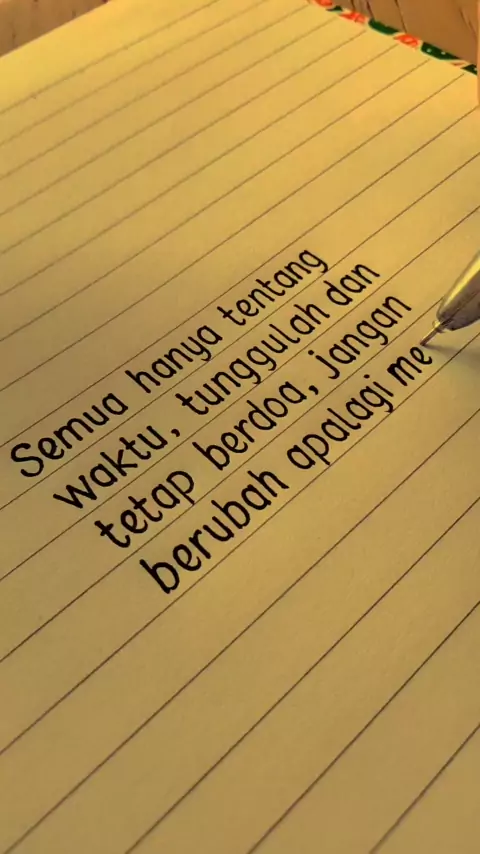 Semua hanya tentang
waktu, tunggulah dan
tetap berdoa, jangan
berubah apalagi me